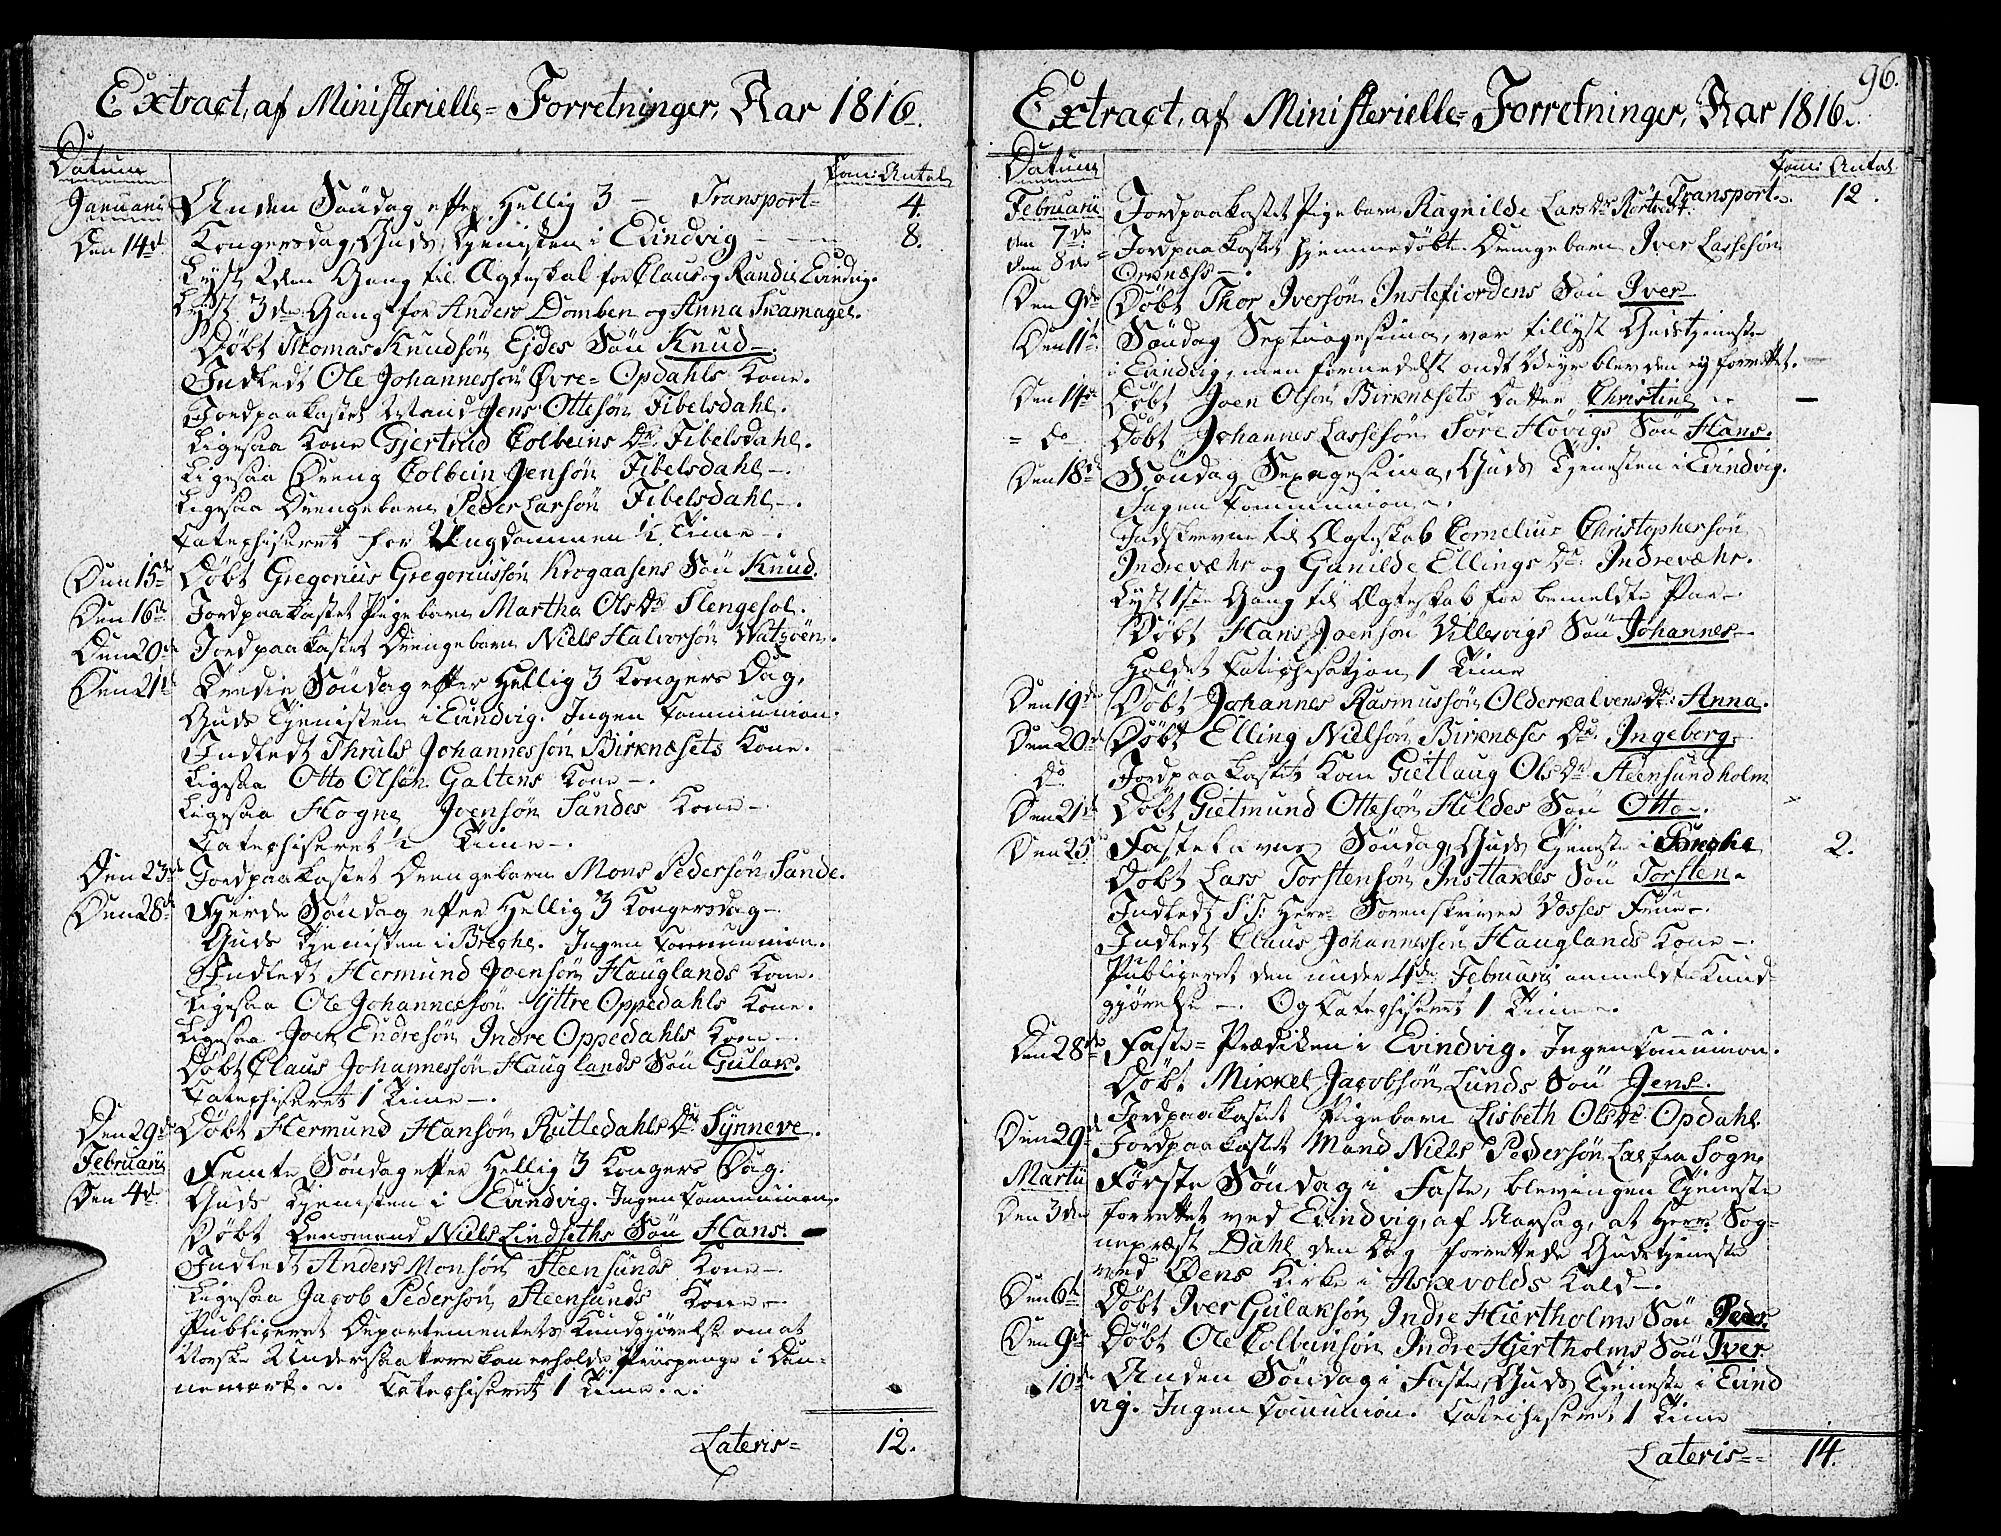 Extract, af Ministerielle= Forretninger, Aar 1816.
Datum Com: Antal
Januarii Anden Søndag efter Hellig 3 — Transport= 4.
Den 14de Kongersdag, Guds Tjenisten i Evindvig — 8.
Lyst 2den Gang til Ægteskab for Claus og Randie Evindvig.
Lyst 3die Gang for Anders Domben og Anna Skamager.
Døbt Thomas Knudsøn Ejdes Søn Knud —.
Indledt Ole Johannessøn Øvre= Opdahls Kone.
Jordpaakastet Mand Jens Ottesøn Tibelsdahl.
Ligesaa Kone Gjertrud Colbeins Dr. Tibelsdahl.
Ligesaa Dreng Colbein Jensøn Tibelsdahl —.
Ligesaa Drengebarn Peder Larsøn Tibelsdahl —.
Catechiseret for Ungdommen ½ Time —.
Den 15de Døbt Gregorius Gregoriussøn Krogaasens Søn Knud.
Den 16de Jordpaakastet Pigebarn Martha Ols Dr. Slengesol.
Den 20de Jordpaakastet Drengebarn Niels Halvorsøn Watzøen.
Den 21de Tredie Søndag efter Hellig 3 Kongers Dag,
Guds Tjenisten i Evindvig. Ingen Communion.
Indledt Thruls Johannessøn Birknæsets Kone.
Ligesaa Otto Olsøn Galtens Kone —.
Ligesaa Hogne Joensøn Sandes Kone —.
Catechiseret ½ Time —.
Den 23de Jordpaakastet Drengebarn Mons Pedersøn Sande.
Den 28de Fjerde Søndag efter Hellig 3 Kongersdag —
Guds Tjenisten i Breche. Ingen Communion.
Indledt Hermund Joensøn Hauglands Kone.
Ligesaa Ole Johannessøn Yttre Oppedahls Kone.
Ligesaa Joen Endresøn Indre Oppedahls Kone —
Døbt Claus Johannessøn Hauglands Søn Gulak.
Catechiseret 1 Time —.
Den 29de Døbt Hermund Hansøn Rutledahls Dr. Synneve.
Februarii Femte Søndag efter Hellig 3 Kongers Dag.
Den 4de Guds Tjenisten i Evindvig. Ingen Communion.
Døbt Lensmand Niels Lindseths Søn Hans.
Indledt Anders Monsøn Steensunds Kone —.
Ligesaa Jacob Pedersøn Steensunds Kone —
Publiceret Departementets Kundgjørelse om at
Norske Undersaattere kan erholde Priispenge i Dan-
nemark. Catechiseret 1 Time.
Lateris= 12.
96.
Extract, af Ministerielle= Forretninger, Aar 1816.
Datum Com: Antal
Februarii Jordpaakastet Pigebarn Ragnilde Lars Dr. Rørtvedt. Transport 12.
den 7de
den 8de Jordpaakastet hjemmedøbt Drengebarn Iver Lassesøn
Ornæss —.
Den 9de Døbt Thor Iversøn Instefiordens Søn Iver
Den 11te Søndag Septuagesima, var tillyst Gudstjeneste
i Evindvig, men formedelst ondt Veyr blev den ej forrettet.
Den 14de Døbt Joen Olsøn Birknæsets Datter Christine
do Døbt Johannes Lassesøn Søre Høvigs Søn Hans.
Den 18de Søndag Sexagesima, Guds Tjenisten i Evindvig.
Ingen Communion.
Indskrevne til Ægteskab Cornelius Christophersøn
Indrevæhr og Gunilde Ellings Dr. Indrevæhr.
Lyst 1ste Gang til Ægteskab for bemeldte Par —
Døbt Hans Joensøn Villesvigs Søn Johannes —
Holdet Catechisation 1 Time
Den 19de Døbt Johannes Rasmussøn Olderkalvens Dr. Anna.
Den 20de Døbt Elling Nielsøn Birknæses Dr. Ingeberg.
Do Jordpaakastet Kone Gietlaug Ols Dr. Steensundholm
Den 21de Døbt Gietmund Ottesøn Hildes Søn Otto.
Den 25 Fastelavns Søndag, Guds Tjeneste i Breche 2.
Døbt Lars Torstensøn Insttakles Søn Torsten.
Indledt S: T: Herr Sorenskriver Vosses Frue —.
Indledt Claus Johannessøn Hauglands Kone —.
Publiceret den under 4de Februarii anmeldte Kund-
gjørelse —. Og Catechiseret 1 Time.
Den 28de Faste= Prædiken i Evindvig. Ingen Communion.
Døbt Mikkel Jacobsøn Lunds Søn Jens.
Jordpaakastet Pigebarn Lisbeth Ols Dr. Opdahl
Den 29de Jordpaakastet Mand Niels Pedersøn Lae fra Sogn
Martii Første Søndag i Faste, blev ingen Tjeneste
Den 3die forrettet ved Evindvig, af Aarsag, at Herr Sog-
nepræst Dahl den Dag forrettede Gudstjeneste
ved Øens Kirke i Askevolds Kald —.
Den 6te Døbt Iver Gulaksøn Indre Hiertholms Søn Peder.
Den 9de Døbt Ole Colbeinsøn Indre Hjertholms Søn Iver
10de Anden Søndag i Faste, Guds Tjeneste i Evind
vig. Ingen Communion. Catechiseret 1 Time
Lateris= 14.